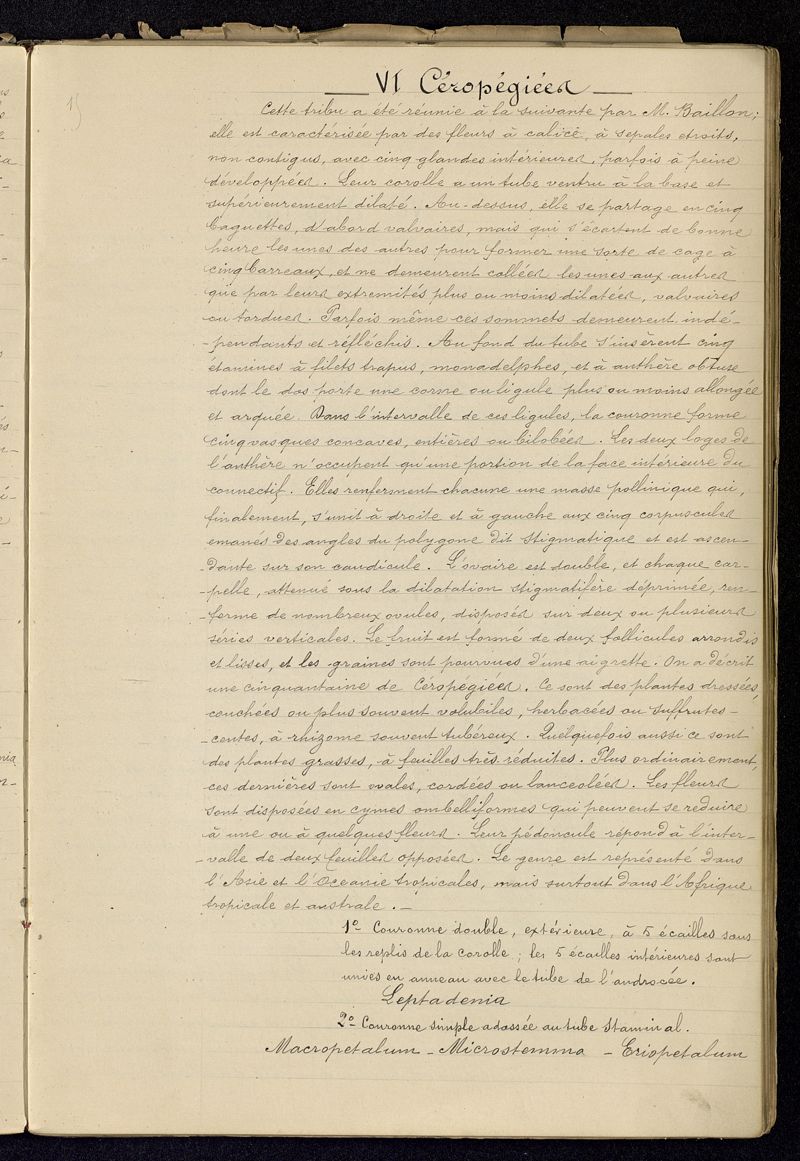 15
VI Céropégiées
Cette tribu a été réunie à la suivante par M. Baillon;
elle est caractérisée par des fleurs à calice, à sepales etroits,
non contigus, avec cinq glandes intérieures, parfois à peine
développées. Leur corolle a un tube ventru à la base et
supérieurement dilaté. Au-dessus, elle se partage en cinq
baguettes, d'abord valvaires, mais qui s'écartent de bonne
heure les unes des autres pour former une sorte de cage à
cinq barreaux, et ne demeurent collées les unes aux autres
que par leurs extremités plus ou moins dilatées, valvaires
ou tordues. Parfois même ces sommets demeurent indé-
-pendants et réfléchis. Au fond du tube s'insèrent cinq
étamines à filets trapus, monadelphes, et à anthère obtuse
dont le dos porte une corne ou ligule plus ou moins allongée
et arquée. Dans l'intervalle de ces ligules, la couronne forme
cinq vasques concaves, entières ou bilobées. Les deux loges de
l'anthère n'occupent qu'une portion de la face intérieure du
connectif. Elles renferment chacune une masse pollinique qui,
finalement, s'unit à droite et à gauche aux cinq corpuscules
emanés des angles du polygone dit stigmatique et est ascen-
-dante sur son caudicule. L'ovaire est double, et chaque car-
-pelle, attenué sous la dilatation stigmatifère déprimée, ren-
-ferme de nombreux ovules, disposés sur deux ou plusieurs
séries verticales. Le fruit est formé de deux follicules arrondis
et lisses, et les graines sont pourvues d'une aigrette. On a décrit
une cinquantaine de Céropégiées. Ce sont des plantes dressées,
couchées ou plus souvent volubiles, herbacées ou suffrutes-
-centes, à rhizome souvent tubéreux. Quelquefois aussi ce sont
des plantes grasses, à feuilles très réduites. Plus ordinairement,
ces dernières sont ovales, cordées ou lanceolées. Les fleurs
sont disposées en cymes ombelliformes qui peuvent se reduire
à une ou à quelques fleurs. Leur pédoncule répond à l'inter-
-valle de deux feuilles opposées. Le genre est représenté dans
l'Asie et l'Oceanie tropicales, mais surtout dans l'Afrique
tropicale et australe. _
1º Couronne double, extérieure, à 5 écailles sous
les replis de la corolle; les 5 écailles intérieures sont
unies en anneau avec le tube de l'androcée.
Leptadenia
2º Couronne simple adossée au tube staminal.
Macropetalum - Microstemma - Eriopetalum